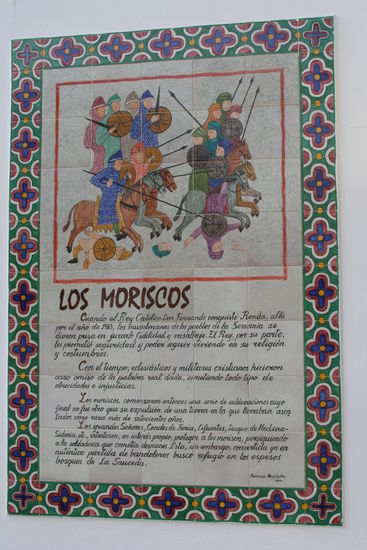 LOS MORISCOS
Cuando el Rey Católico Don Fernando conquistó Ronda, allá
por el año de 1485, los musulmanes de los pueblos de la Serranía se
dieron prisa en jurarle fidelidad y vasallaje. El Rey, por su parte,
les prometió seguridad y poder seguir viviendo en su religión
y costumbres.
Con el tiempo, eclesiásticos y militares cristianos hicieron
caso omiso de la palabra real dada, cometiendo todo tipo de
atrocidades e injusticias.
Los moriscos, comenzaron entonces una serie de sublevaciones cuyo
final no fue otro que su expulsión de una tierra en la que llevaban asen
tados como raza más de setecientos años.
Los grandes Señores, Condes de Feria, Cifuentes, Duque de Medina-
Sidonia, etc, intentaron, en interés propio, proteger a los moriscos, persiguiendo
a la soldadesca que cometía desmanes. Esta, sin embargo, convertida ya en
auténtica partida de bandoleros buscó refugio en los espesos
bosques de La Sauceda.